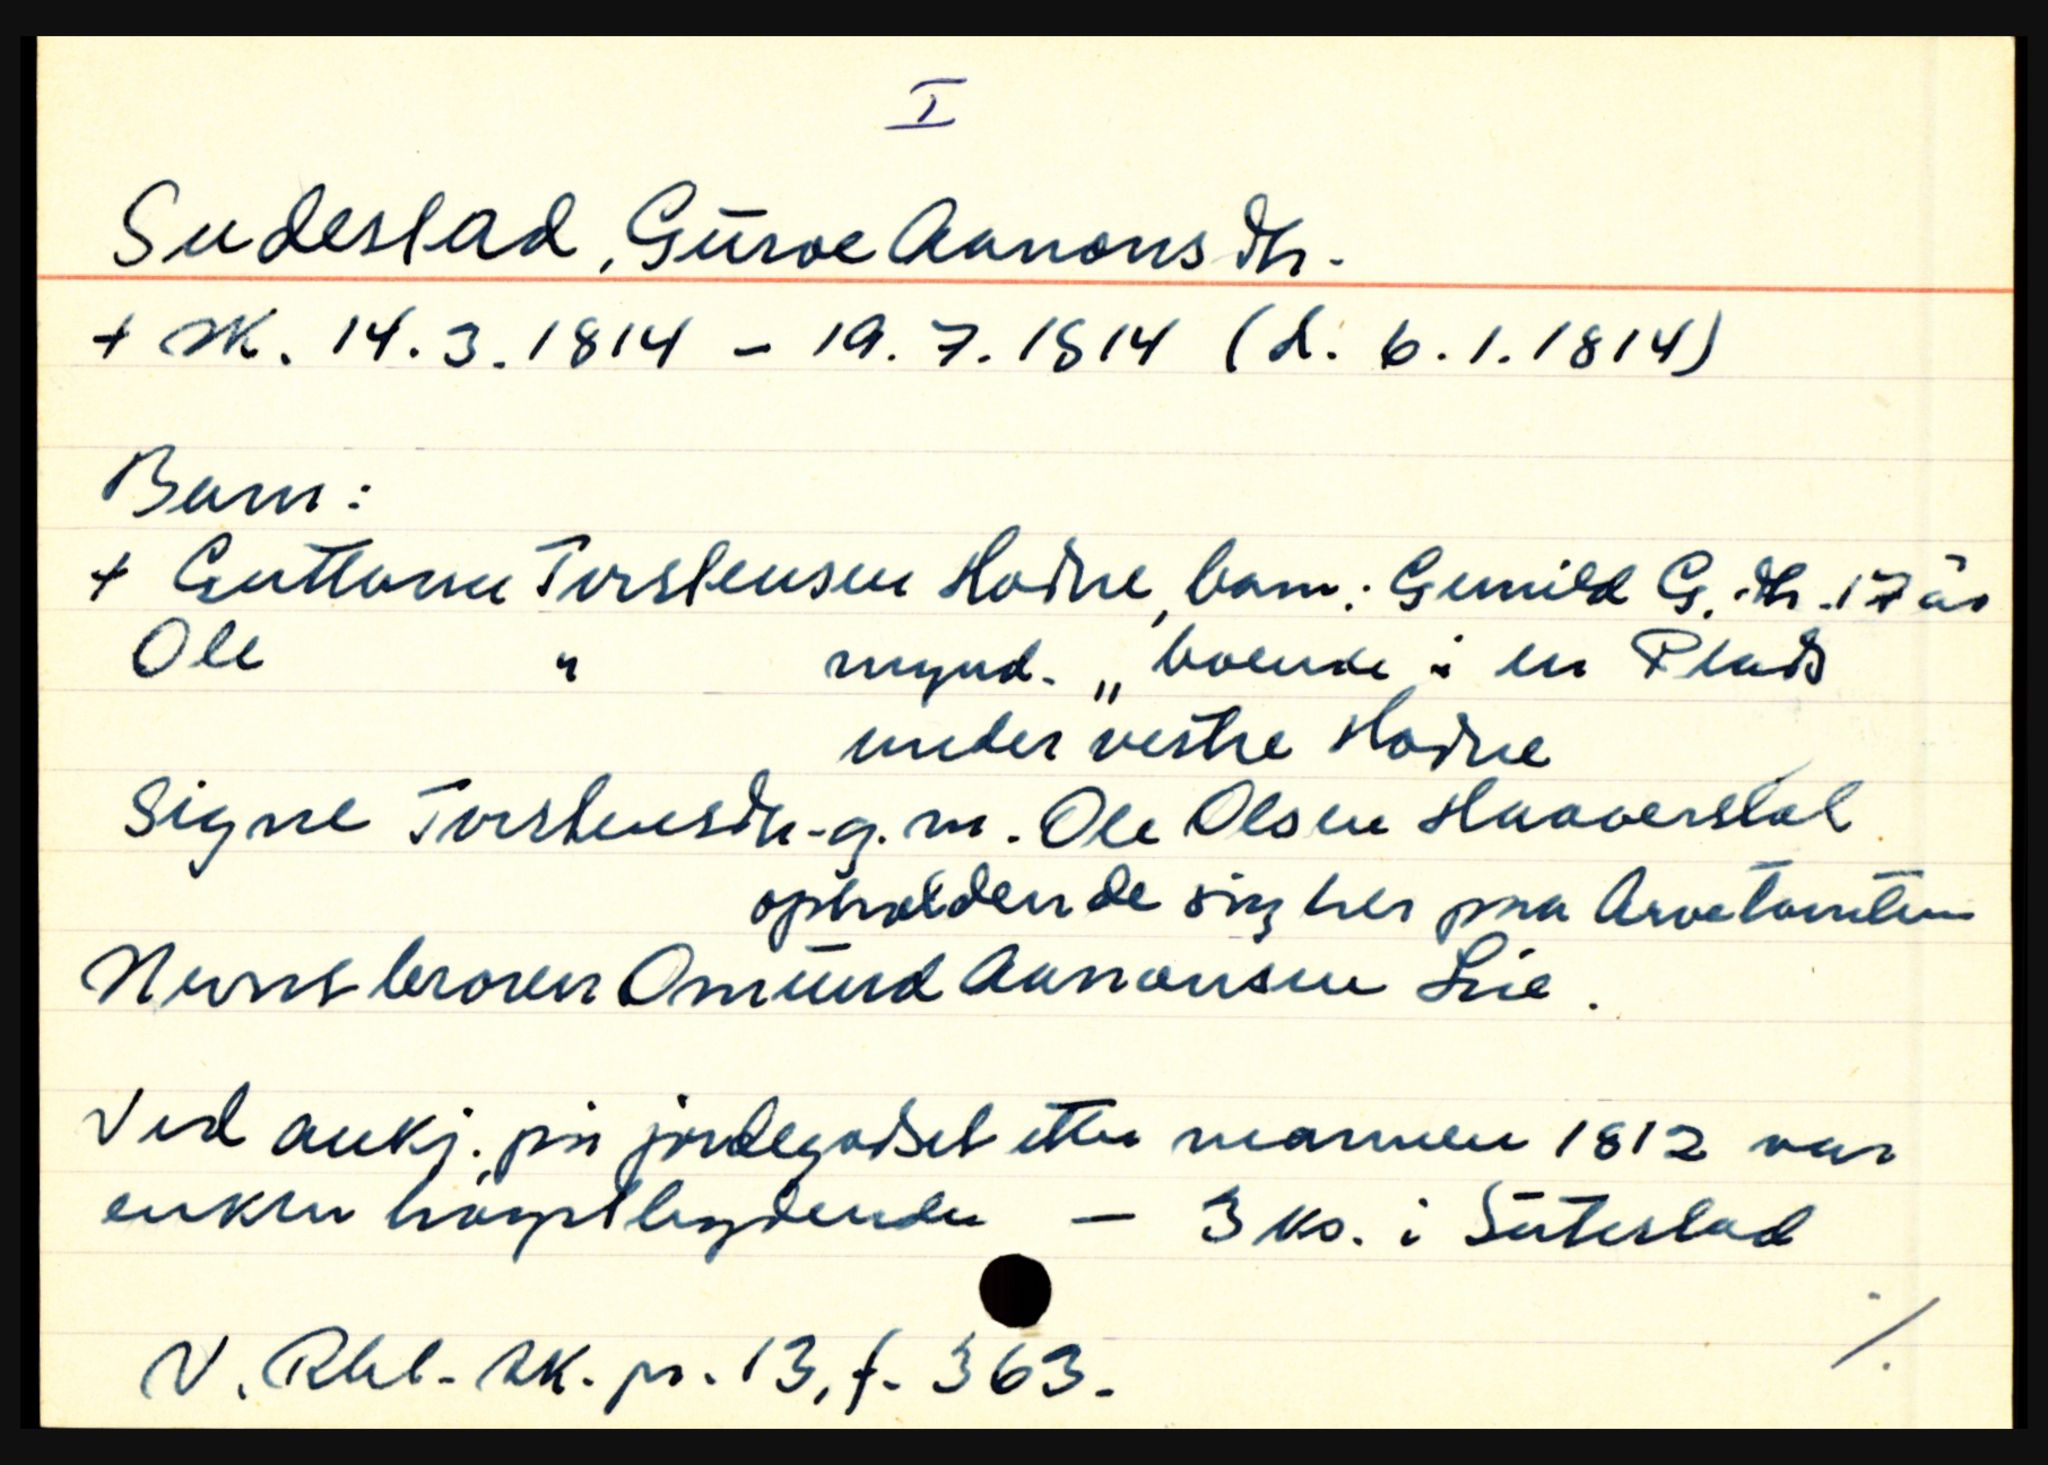 I
Sudeslad, Gũroe Aanonsdtr.
+ sk. 14.3.1814 - 19.7.1814 (d. 6.1.1814)
Barn:
+ Guttorm Torstensen Hodne, barn: Gunild G.dtr. 17 år
Ole " mynd. „boende i en Plads
under vestre Hodne
Signe Torstensdtr. g.m. Ole Olsen Haaverstøl
opholdende sig her paa Arvetomten
Nevnes broren Omũnd Aanonsen Lie.
Ved aukj. på jordegodset etter mannen 1812 var
enken høgstbydende - 3 ks. i Sũteslad
V. Rbl. sk. pr. 13, f. 363.
/.